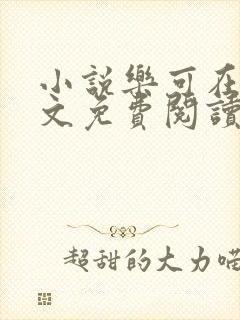 小說樂可在
文免費閱讀
超甜的大力喵